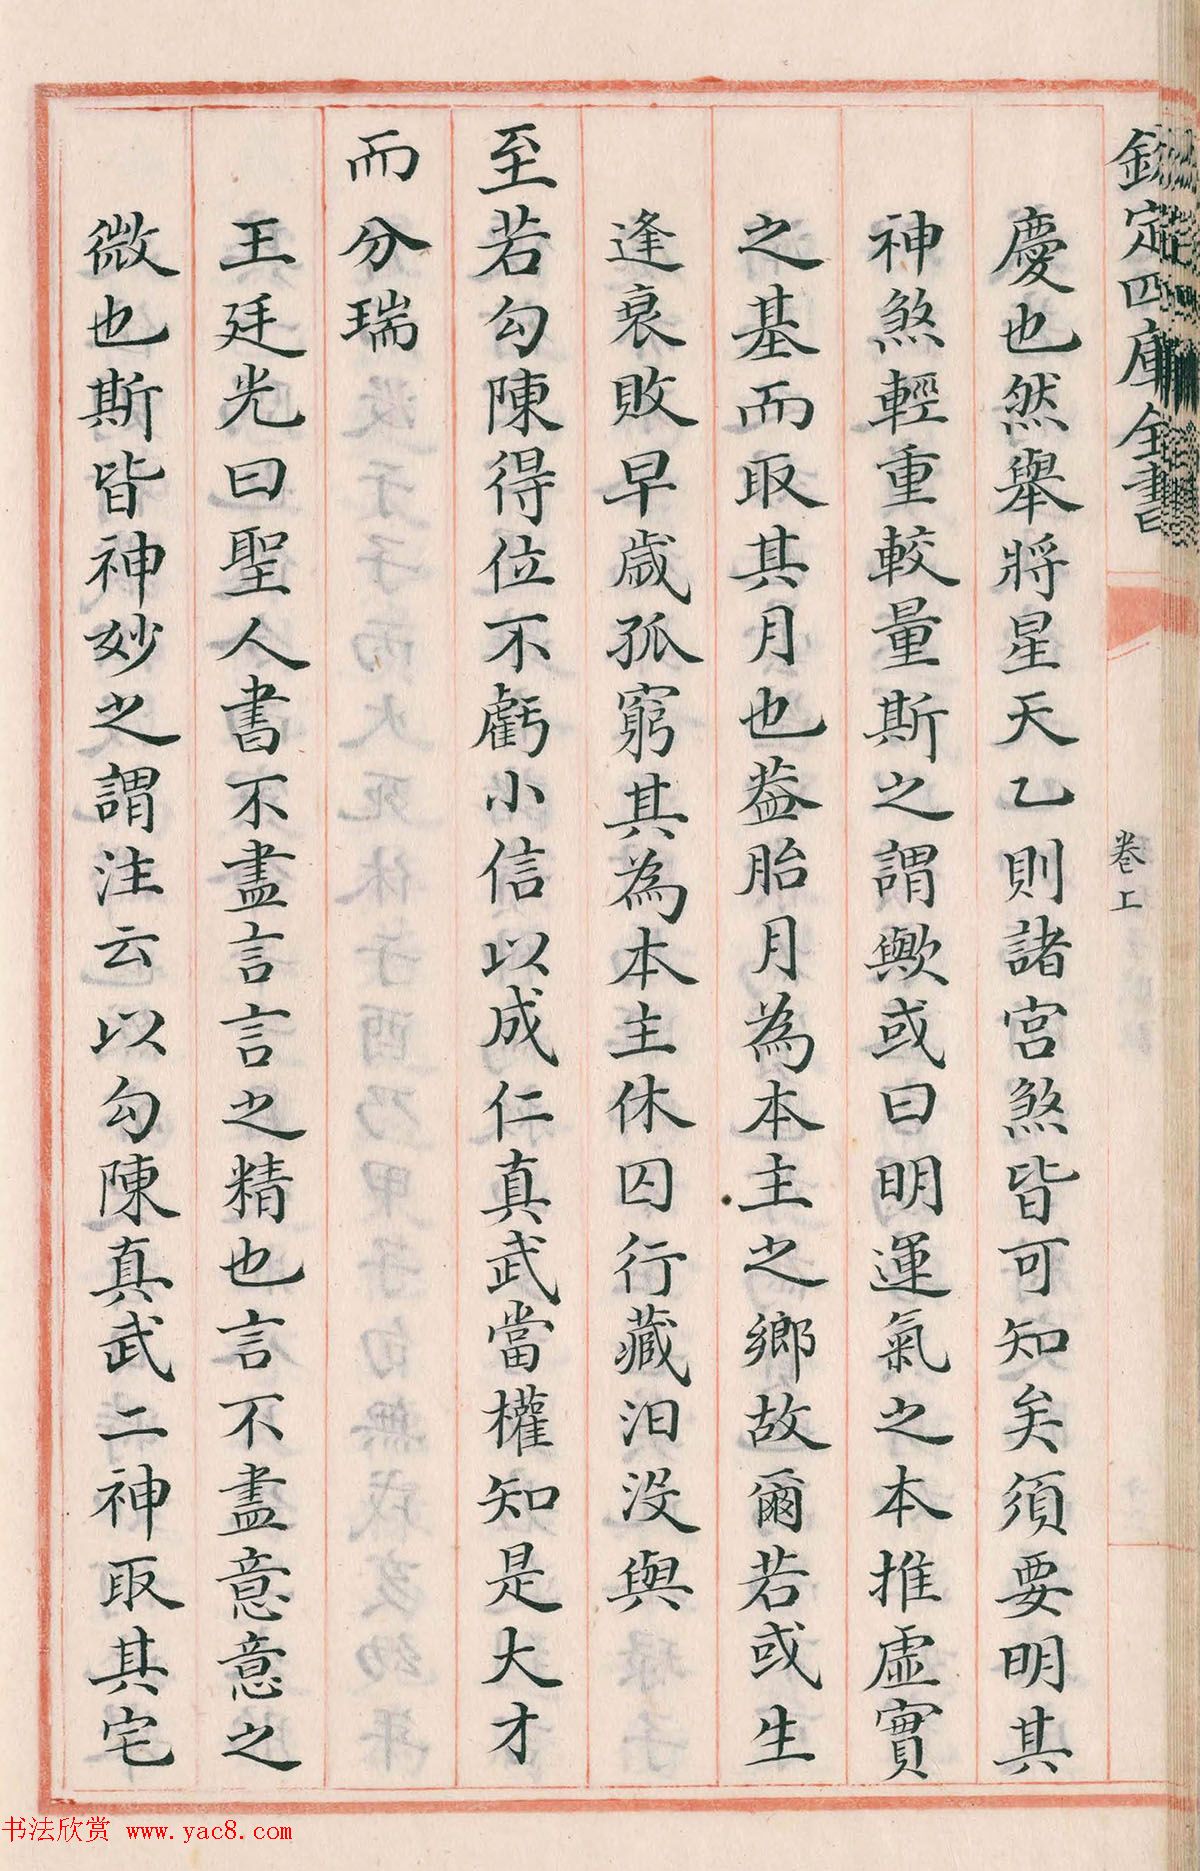 欽定四庫全書
卷上
慶也然舉將星天乙則諸宮煞皆可知矣須要明其
神煞輕重較量斯之謂歟或曰明運氣之本推虛實
之基而取其月也葢胎月為本主之鄉故爾若或生
逢衰敗早歲孤窮其為本主休囚行藏汨没與
至若勾陳得位不虧小信以成仁真武當權知是大才
而分瑞
王廷光曰聖人書不盡言言之精也言不盡意意之
微也斯皆神妙之謂注云以勾陳真武二神取其宅
书法欣赏 www.yac8.com